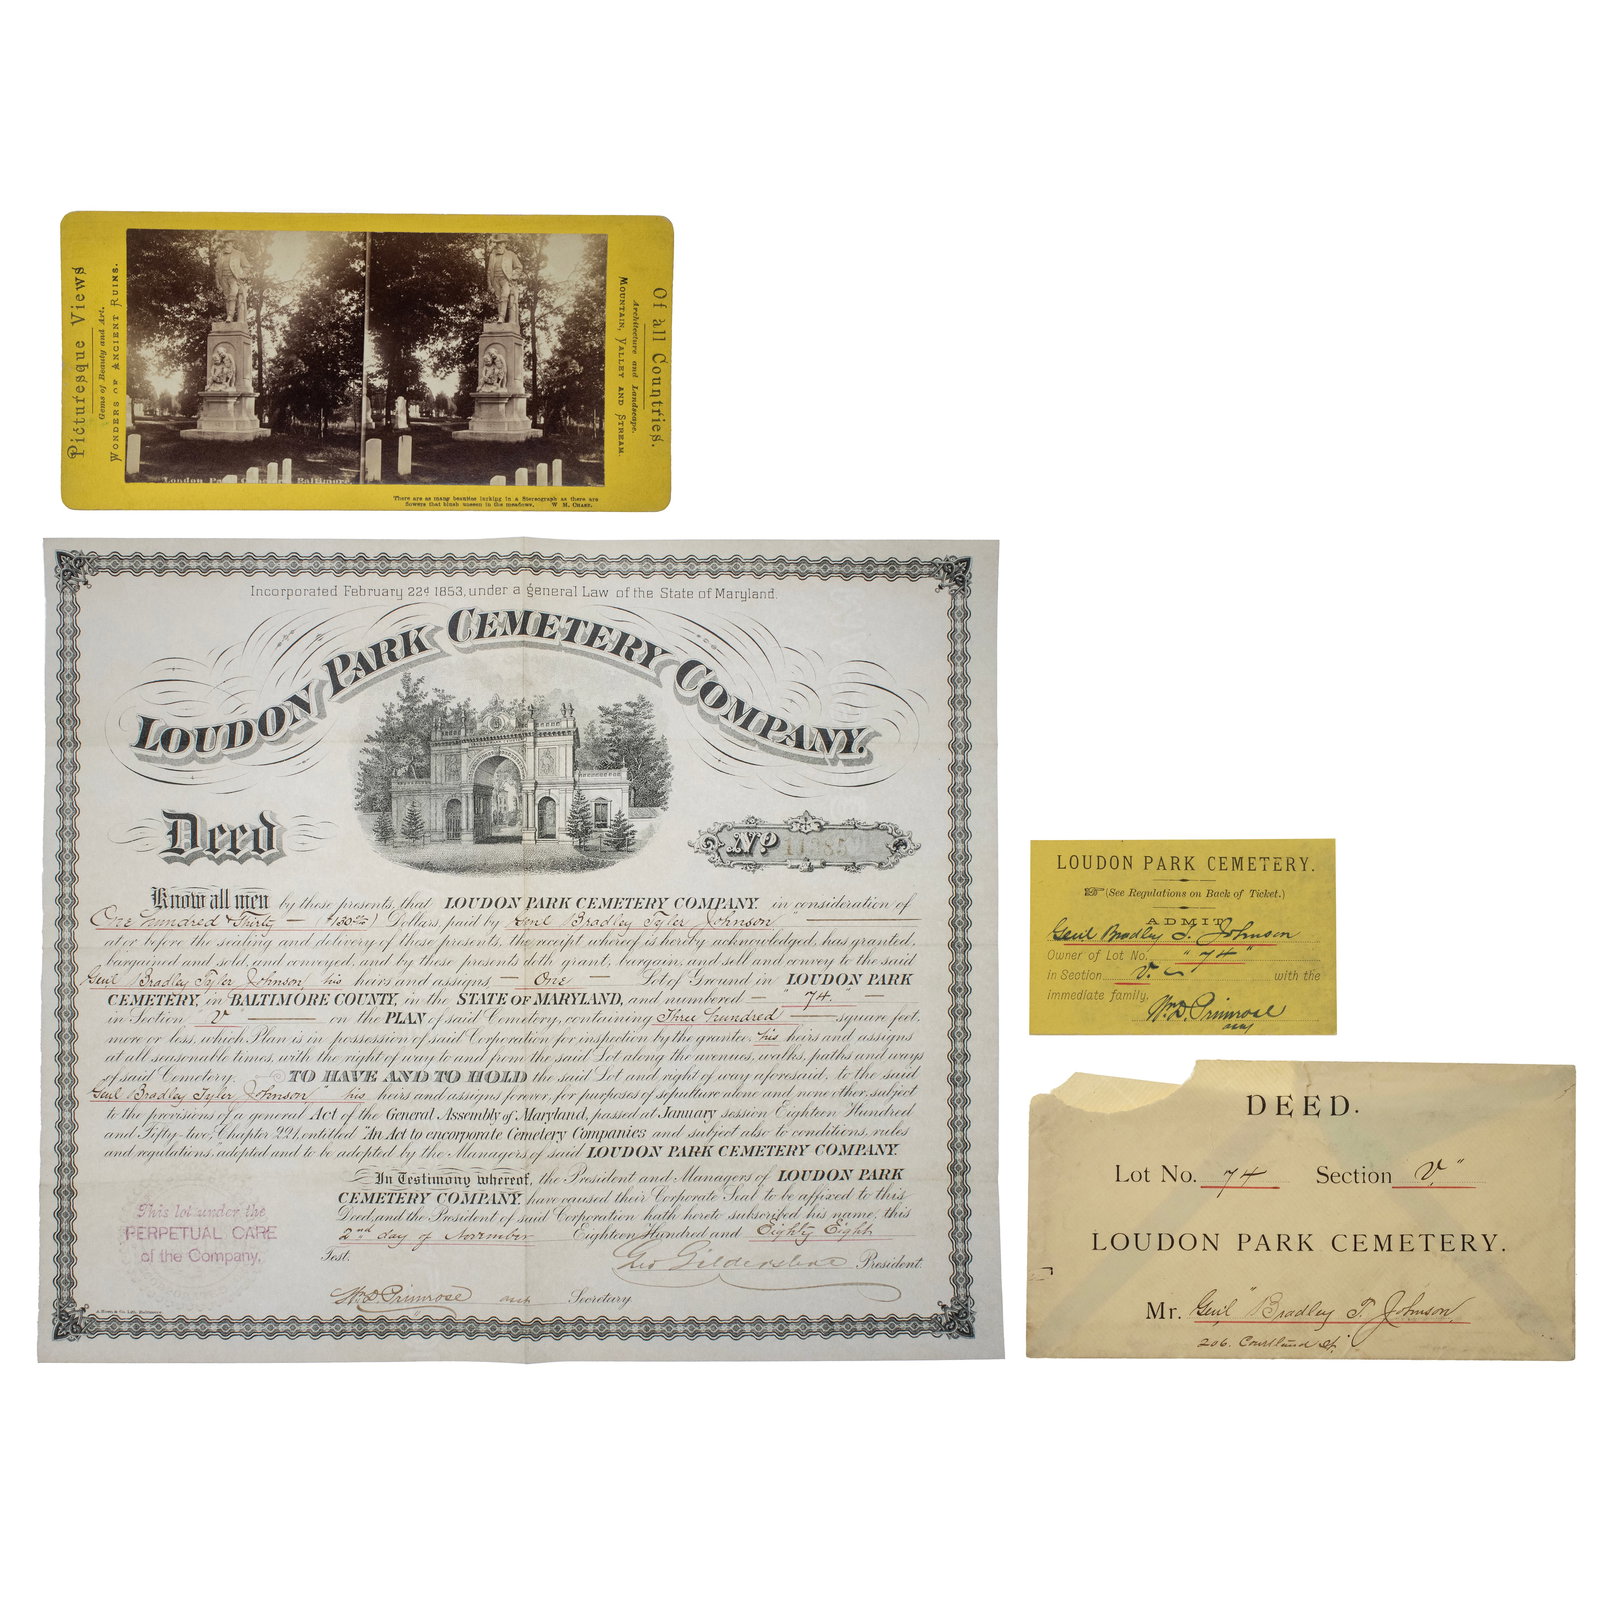 Picturesque Views
Gems of Beauty and Art.
Wonders of Ancient Ruins.
Of all Countries.
Architecture and Landscape.
Mountain, Valley and Stream.
Loudon Park Cemetery Baltimore.
There are as many beauties lurking in a Stereograph as there are
flowers that blush unseen in the meadows. W. M. Chase.
Incorporated February 22d 1853, under a general Law of the State of Maryland.
Loudon Park Cemetery Company.
Deed
No
Know all men by these presents, that LOUDON PARK CEMETERY COMPANY, in consideration of
One Hundred & Thirty — ($130 00/100) Dollars, paid by Genl Bradley Tyler Johnson
at or before the sealing and delivery of these presents, the receipt whereof is hereby acknowledged, has granted,
bargained and sold, and conveyed, and by these presents doth grant, bargain, and sell and convey to the said
Genl Bradley Tyler Johnson, his heirs and assigns, — One — Lot of Ground in LOUDON PARK
CEMETERY, in BALTIMORE COUNTY, in the STATE OF MARYLAND, and numbered — "74." —
in Section "V" — on the PLAN of said Cemetery, containing Three Hundred — square feet,
more or less, which Plan is in possession of said Corporation for inspection by the grantee, his heirs and assigns
at all seasonable times, with the right of way to and from the said Lot along the avenues, walks, paths and ways
of said Cemetery. TO HAVE AND TO HOLD the said Lot and right of way aforesaid, to the said
Genl Bradley Tyler Johnson" his heirs and assigns forever, for purposes of sepulture alone and none other, subject
to the provisions of a general Act of the General Assembly of Maryland, passed at January session Eighteen Hundred
and Fifty-two, Chapter 221, entitled "An Act to encorporate Cemetery Companies and subject also to conditions, rules
and regulations, adopted and to be adopted by the Managers of said LOUDON PARK CEMETERY COMPANY.
In Testimony whereof, the President and Managers of LOUDON PARK
CEMETERY COMPANY, have caused their Corporate Seal to be affixed to this
Deed, and the President of said Corporation hath hereto subscribed his name, this
2nd day of November Eighteen Hundred and Eighty Eight
This lot under the
PERPETUAL CARE
of the Company.
Test.
Geo Gildersleve President.
Wm D. Primrose Secretary
A. Hoen & Co. Lith. Baltimore.
LOUDON PARK CEMETERY.
(See Regulations on Back of Ticket.)
ADMIT
Genl Bradley T. Johnson
Owner of Lot No. "74"
in Section V. with the
immediate family.
Wm D. Primrose
DEED.
Lot No. 74 Section V."
LOUDON PARK CEMETERY.
Mr. Genl" Bradley T. Johnson,
206. Courtland St.